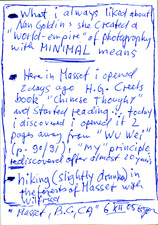 - What i always liked about
Nan Goldin: she created a
"world-empire" of photography
with MINIMAL means
- Here in Masset i opened
2 days ago H.G. Creel's
book "Chinese Thought"
and started reading... today
i discovered i opened it 2
pages away from "WU WEI"
(p. 90/91), "my" principle
rediscovered after almost 20 years
- hiking (slightly drunk) in
the forests of Masset with
Wilfried
Masset, B.C, CA 6 XII 05